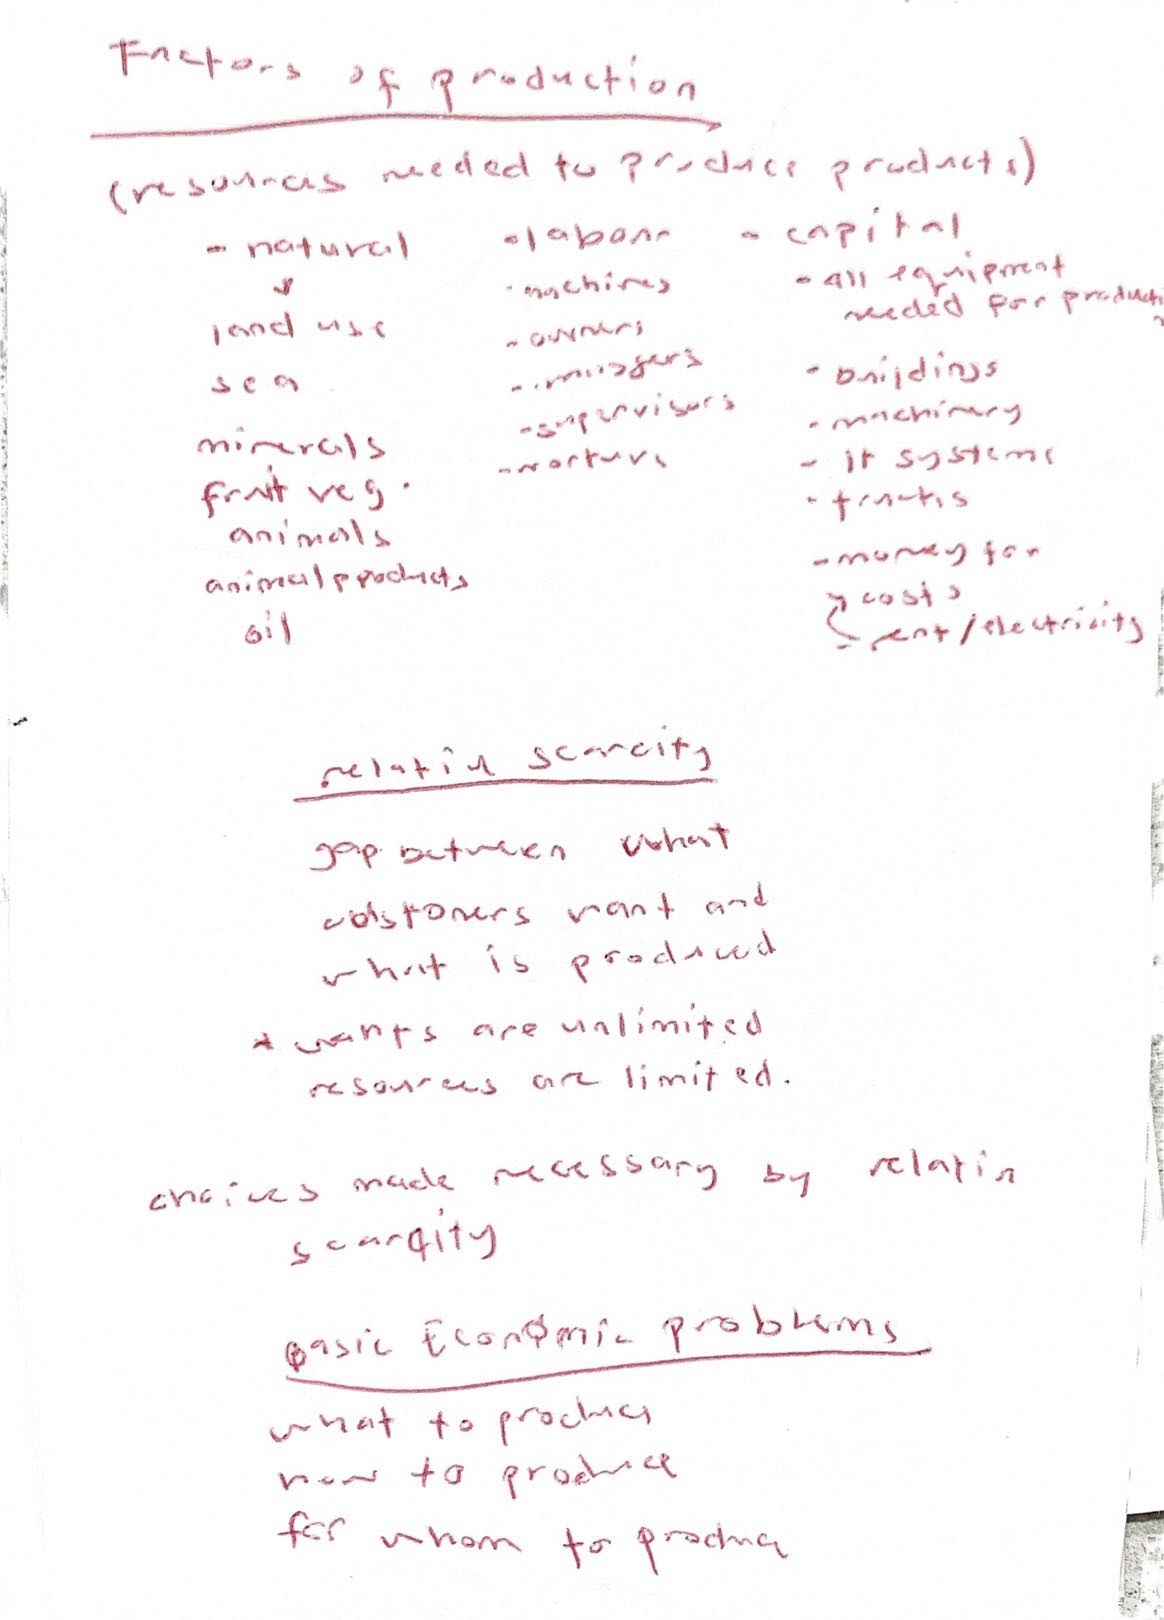 Factors of production
(resources needed to produce products)
- natural
land use
sea
minerals
fruit veg.
animals
animal products
oil
- labour
- machines
- owners
- supervisors
- capital
- all equipment
needed for producti
- buildings
- machinery
- it systems
- money for
costs
rent/electricity
relative scarcity
gap between what
customers want and
what is produced
* wants are unlimited
resources are limited.
choices made necessary by relative
scarcity
basic Economic problems
what to produce
how to produce
for whom to produce